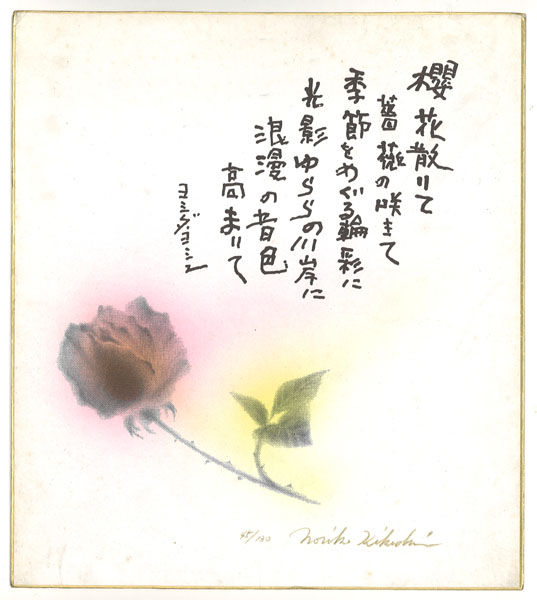 櫻花散りて
薔薇の咲きて
季節をめぐる輪彩に
光影ゆららの川岸に
浪漫の音色
高まりて
ヨシダヨシエ
45/130 Noriko